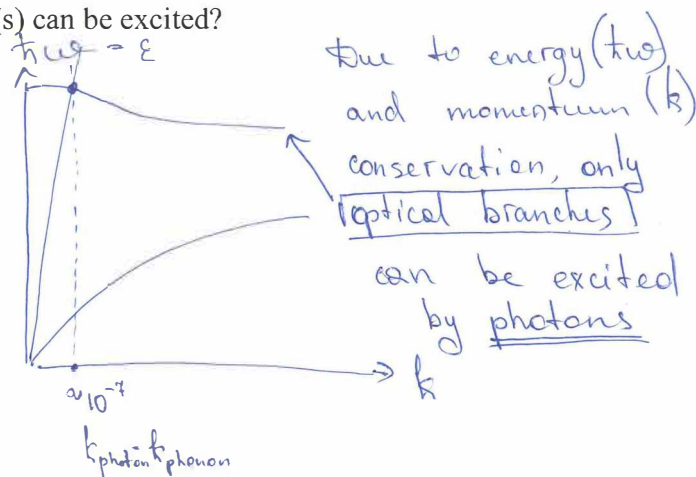 (s) can be excited?
ħω = ε
Due to energy (ħω)
and momentum (k)
conservation, only
optical branches
can be excited
by photons
k
~10⁻⁷
k photon = k phonon